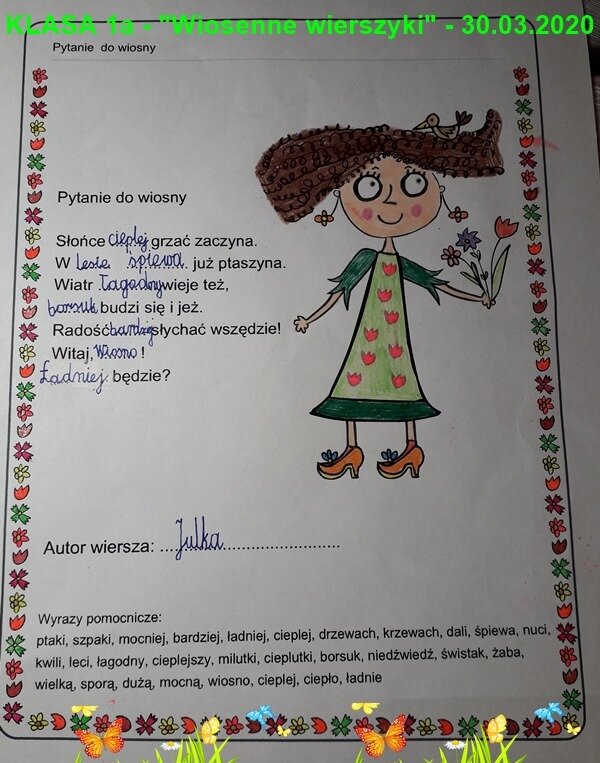 KLASA 1a - "Wiosenne wierszyki" - 30.03.2020
Pytanie do wiosny
Pytanie do wiosny
Słońce cieplej grzać zaczyna.
W lesie śpiewa już ptaszyna.
Wiatr łagodny wieje też,
borsuk budzi się i jeż.
Radość bardziej słychać wszędzie!
Witaj, Wiosno!
Ładniej będzie?
Autor wiersza: ....Julka............................
Wyrazy pomocnicze:
ptaki, szpaki, mocniej, bardziej, ładniej, cieplej, drzewach, krzewach, dali, śpiewa, nuci,
kwili, leci, łagodny, cieplejszy, milutki, cieplutki, borsuk, niedźwiedź, świstak, żaba,
wielką, sporą, dużą, mocną, wiosno, cieplej, ciepło, ładnie